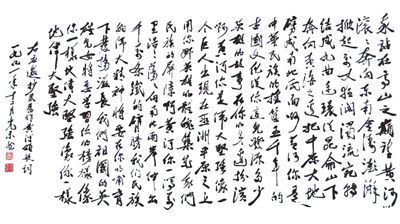 我站在高山之巅望黄河
滚滚奔向东南金涛澎湃
掀起万丈狂澜浊流宛转
结成九曲连环从昆仑山下
奔向黄海之边把中原大地
劈成南北两面啊黄河你是
中华民族的摇篮五千年的
古国文化从你这儿发源多少
英雄的故事在你的身边扮演
啊黄河你是伟大坚强像一
个巨人出现在亚洲平原之上
用你那英雄的体魄筑成我们
民族的屏障啊黄河你一泻万
里浩浩荡荡向南北两岸伸出
千万条铁的臂膀我们民族
的伟大精神将要在你的哺育
下发扬滋长我们祖国的英
雄儿女将要学习你的榜样像
你一样伟大坚强像你一样
地伟大坚强
黄河颂歌词
一九九一年十一月